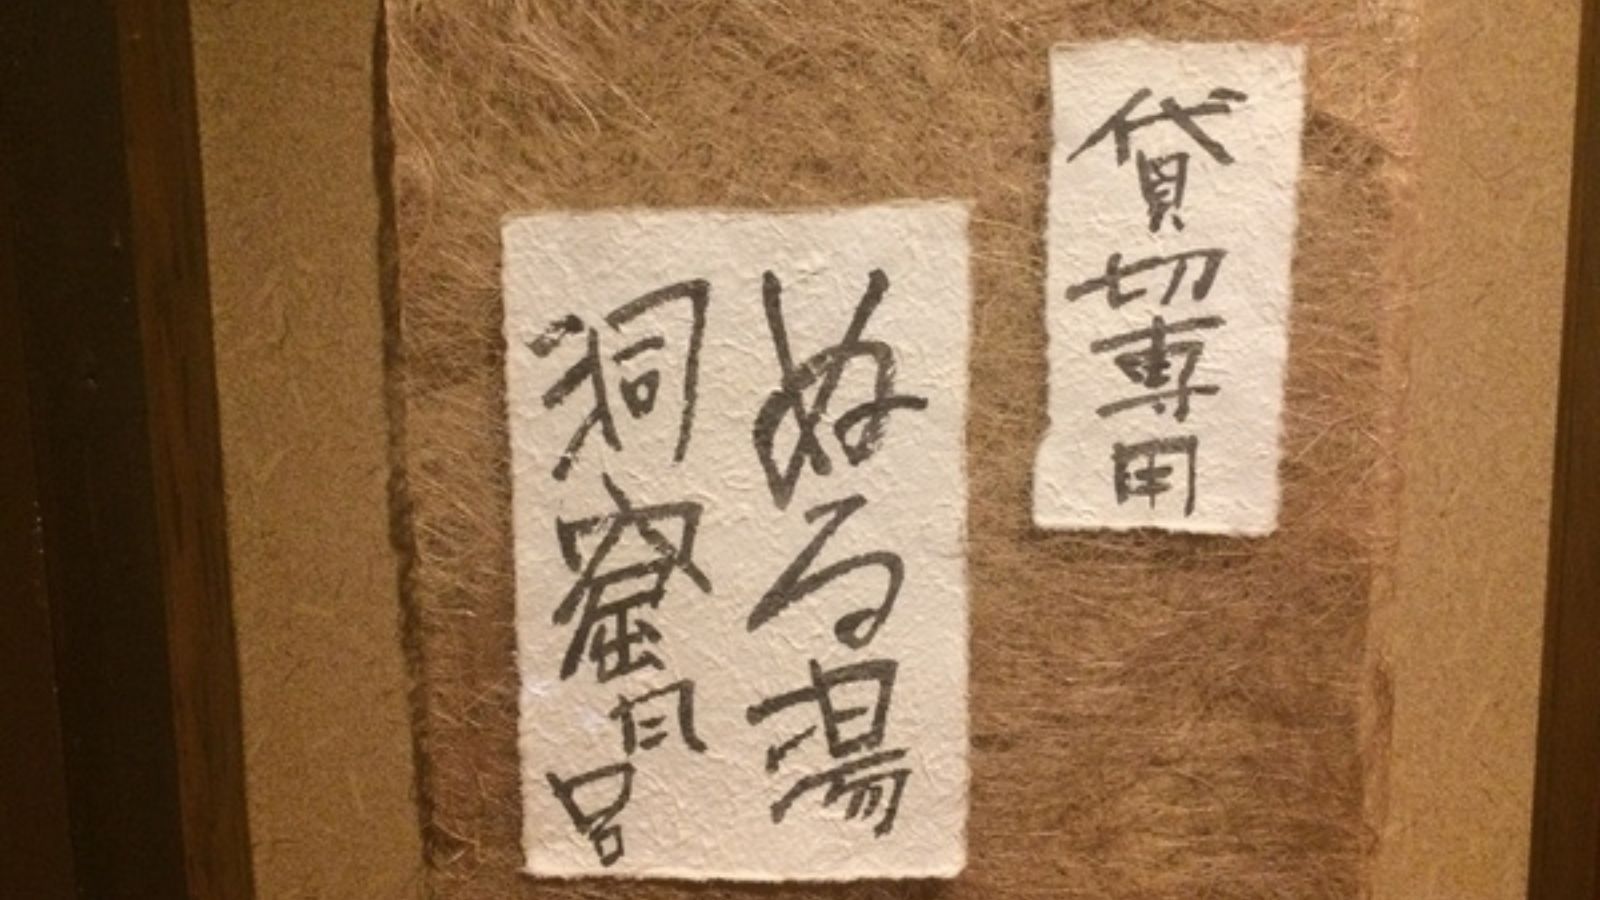 貸切専用
ぬる湯
洞窟風呂